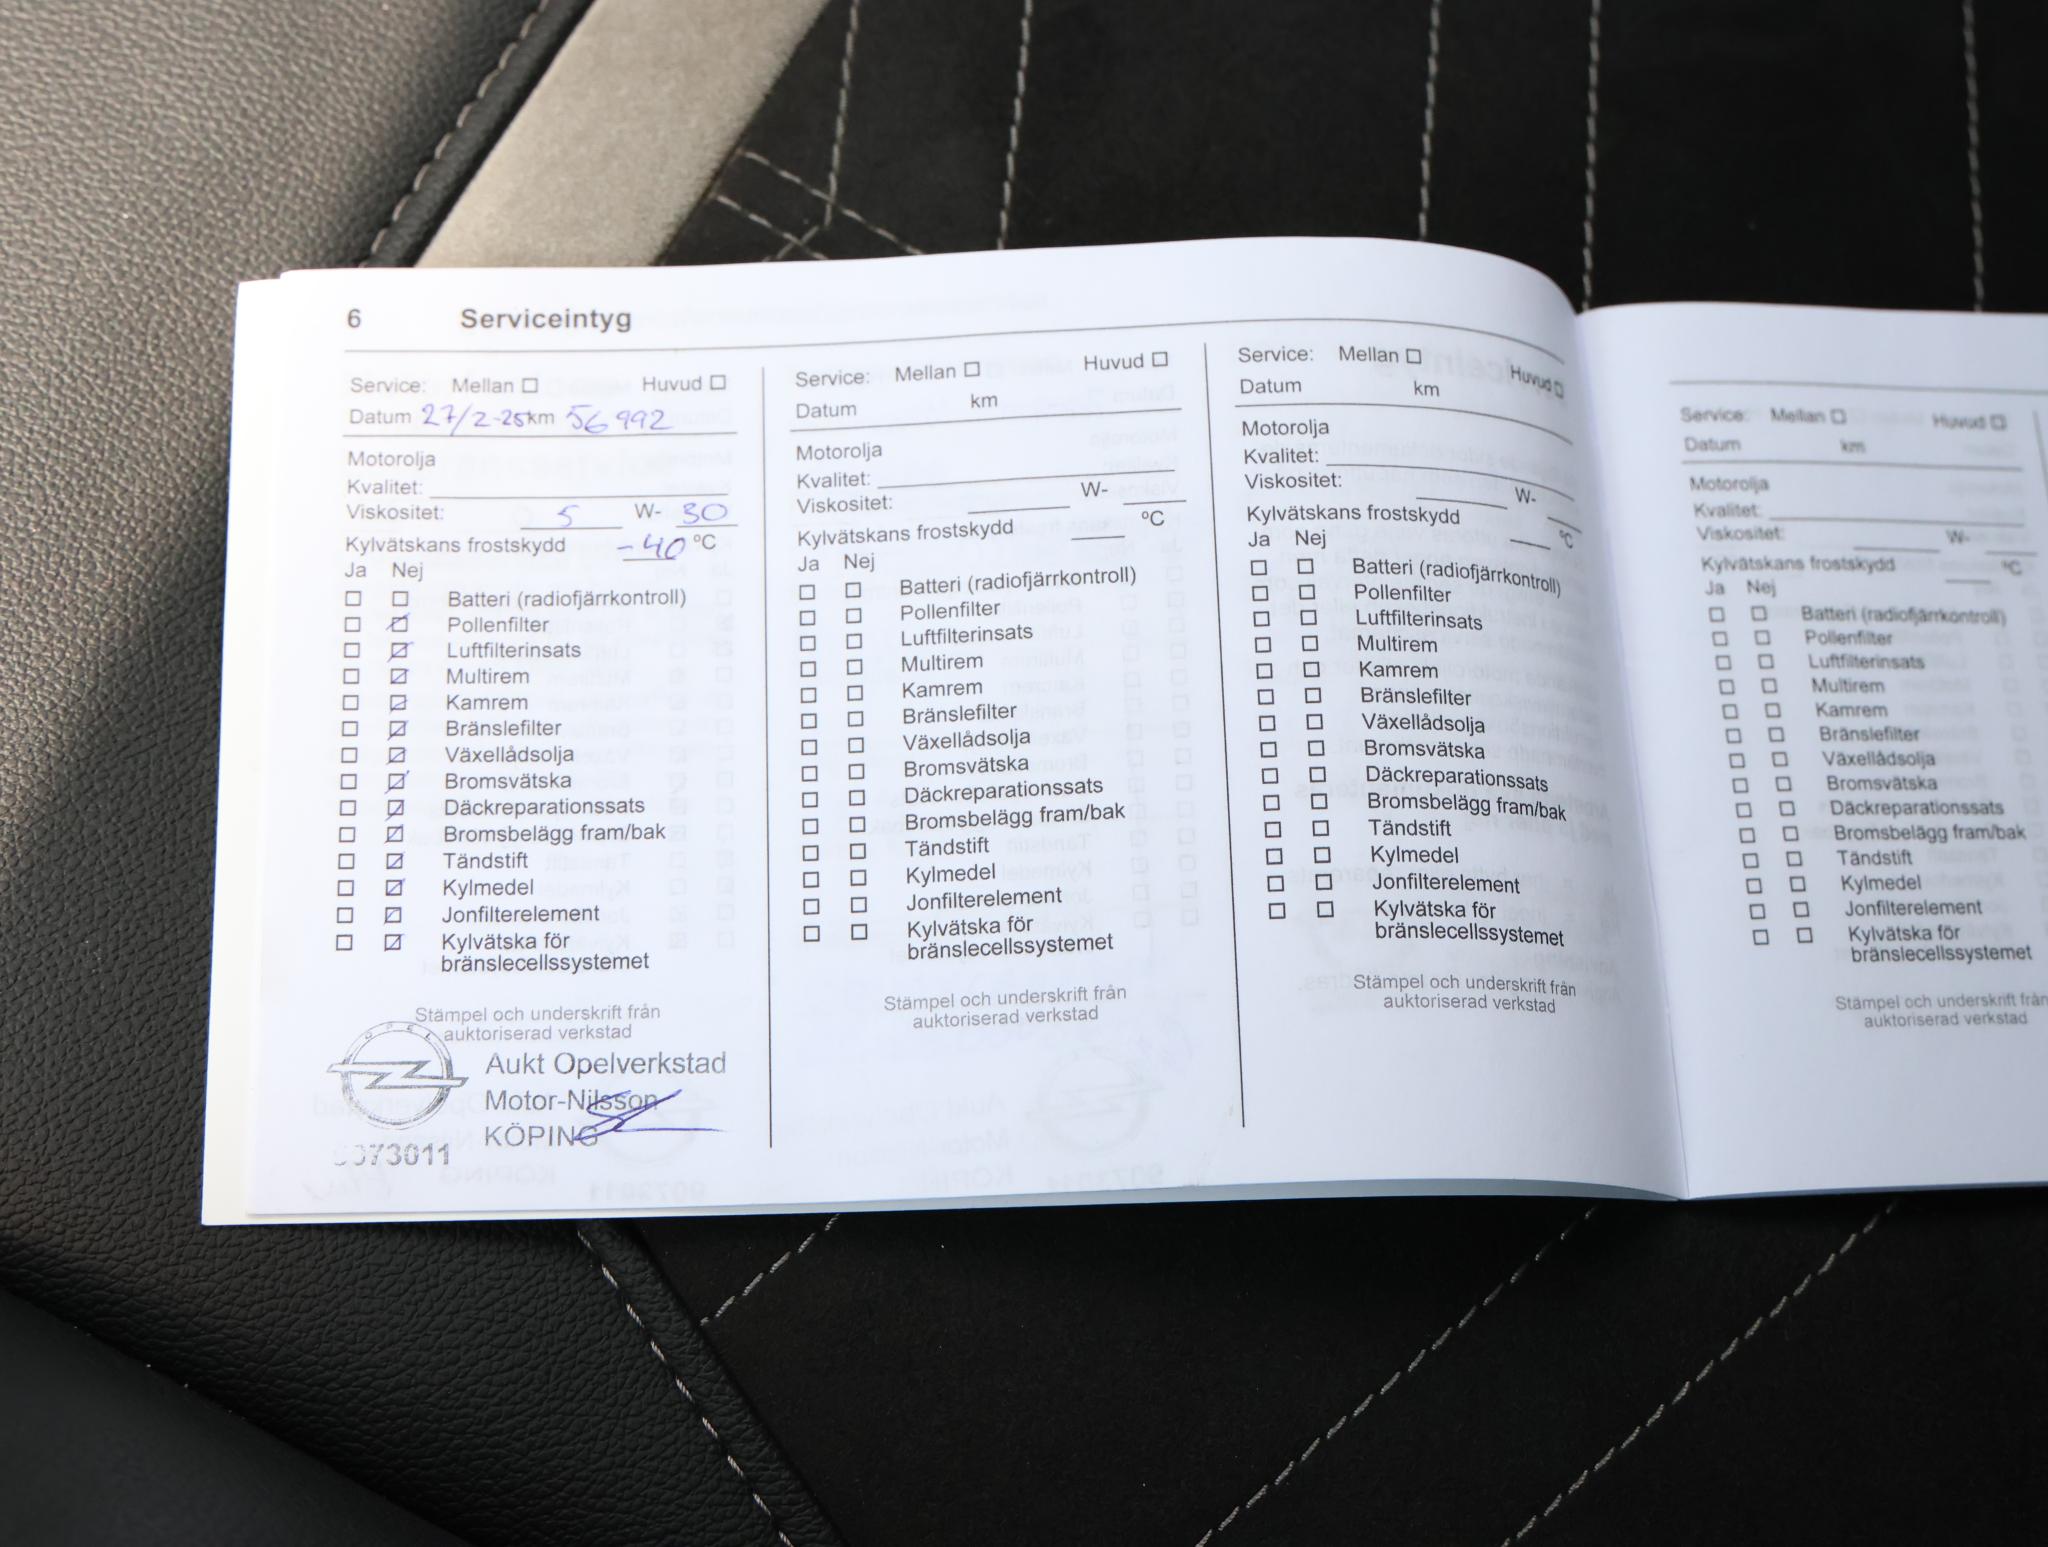 6 Serviceintyg
Service: Mellan ☐ Huvud ☐
Datum 27/2-25 km 56992
Motorolja
Kvalitet:
Viskositet: 5 W- 30
Kylvätskans frostskydd -40 °C
Ja Nej
☐ ☐ Batteri (radiofjärrkontroll)
☐ ☑ Pollenfilter
☐ ☑ Luftfilterinsats
☐ ☑ Multirem
☐ ☑ Kamrem
☐ ☑ Bränslefilter
☐ ☑ Växellådsolja
☐ ☑ Bromsvätska
☐ ☑ Däckreparationssats
☐ ☑ Bromsbelägg fram/bak
☐ ☑ Tändstift
☐ ☑ Kylmedel
☐ ☑ Jonfilterelement
☐ ☑ Kylvätska för
bränslecellssystemet
Stämpel och underskrift från
auktoriserad verkstad
OPEL
Aukt Opelverkstad
Motor-Nilsson
KÖPING
9073011
Service: Mellan ☐ Huvud ☐
Datum km
Motorolja
Kvalitet:
Viskositet: W-
Kylvätskans frostskydd °C
Ja Nej
☐ ☐ Batteri (radiofjärrkontroll)
☐ ☐ Pollenfilter
☐ ☐ Luftfilterinsats
☐ ☐ Multirem
☐ ☐ Kamrem
☐ ☐ Bränslefilter
☐ ☐ Växellådsolja
☐ ☐ Bromsvätska
☐ ☐ Däckreparationssats
☐ ☐ Bromsbelägg fram/bak
☐ ☐ Tändstift
☐ ☐ Kylmedel
☐ ☐ Jonfilterelement
☐ ☐ Kylvätska för
bränslecellssystemet
Stämpel och underskrift från
auktoriserad verkstad
Service: Mellan ☐ Huvud ☐
Datum km
Motorolja
Kvalitet:
Viskositet: W-
Kylvätskans frostskydd °C
Ja Nej
☐ ☐ Batteri (radiofjärrkontroll)
☐ ☐ Pollenfilter
☐ ☐ Luftfilterinsats
☐ ☐ Multirem
☐ ☐ Kamrem
☐ ☐ Bränslefilter
☐ ☐ Växellådsolja
☐ ☐ Bromsvätska
☐ ☐ Däckreparationssats
☐ ☐ Bromsbelägg fram/bak
☐ ☐ Tändstift
☐ ☐ Kylmedel
☐ ☐ Jonfilterelement
☐ ☐ Kylvätska för
bränslecellssystemet
Stämpel och underskrift från
auktoriserad verkstad
Service: Mellan ☐ Huvud ☐
Datum km
Motorolja
Kvalitet:
Viskositet: W-
Kylvätskans frostskydd °C
Ja Nej
☐ ☐ Batteri (radiofjärrkontroll)
☐ ☐ Pollenfilter
☐ ☐ Luftfilterinsats
☐ ☐ Multirem
☐ ☐ Kamrem
☐ ☐ Bränslefilter
☐ ☐ Växellådsolja
☐ ☐ Bromsvätska
☐ ☐ Däckreparationssats
☐ ☐ Bromsbelägg fram/bak
☐ ☐ Tändstift
☐ ☐ Kylmedel
☐ ☐ Jonfilterelement
☐ ☐ Kylvätska för
bränslecellssystemet
Stämpel och underskrift från
auktoriserad verkstad